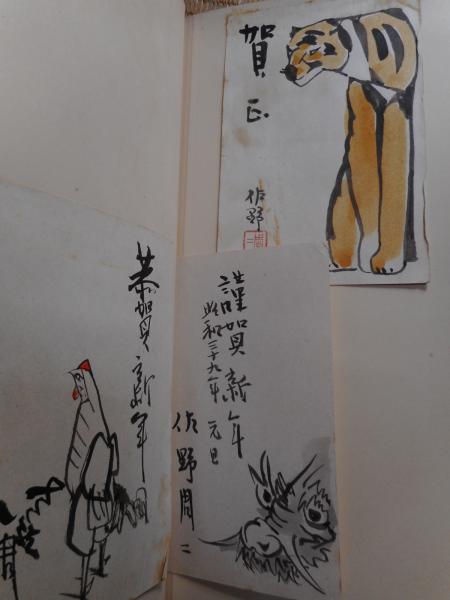 賀正
佐野
謹賀新年
昭和三十九年 元旦
佐野周二
恭賀新年